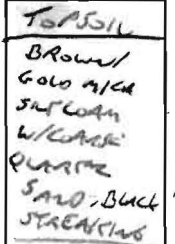 TOPSOIL
BROWN/
GOLD MICA
SILT LOAM
W/COARSE
QUARTZ
SAND, BLACK
STREAKING